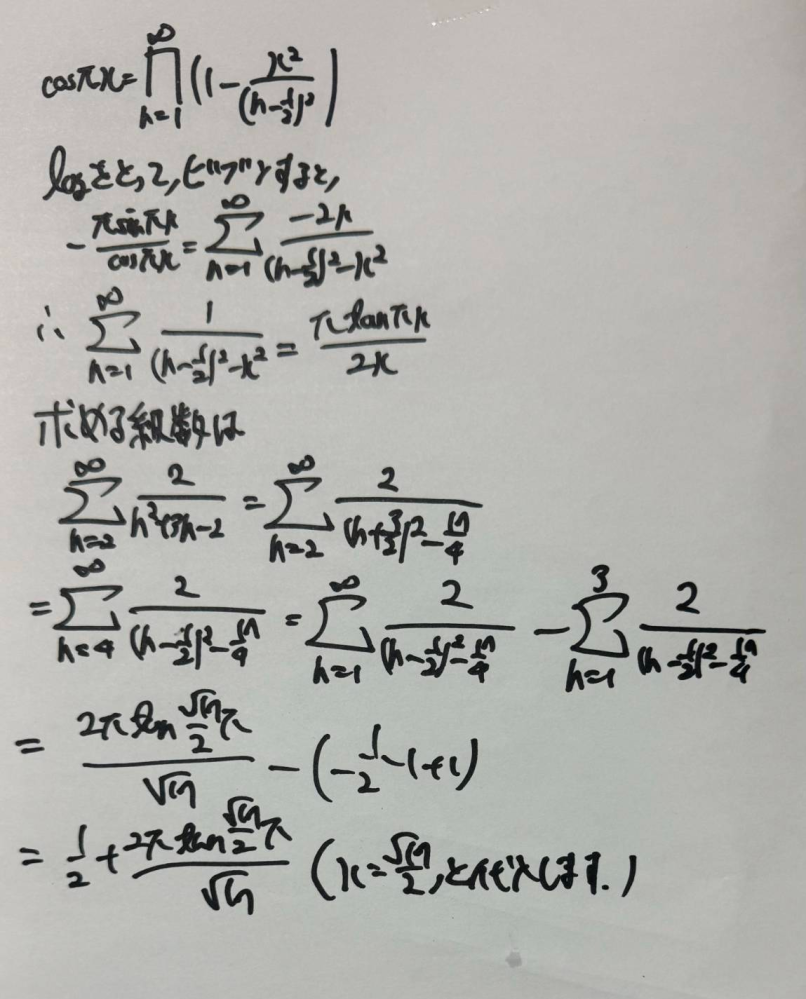 cosπx = ∏_{n=1}^{∞} (1 - x²/(n-1/2)²)
logをとって, ビブンすると,
- πsinπx/cosπx = Σ_{n=1}^{∞} -2x/((n-1/2)²-x²)
∴ Σ_{n=1}^{∞} 1/((n-1/2)²-x²) = π tanπx/2x
求める級数は
Σ_{n=2}^{∞} 2/(n²+3n-2) = Σ_{n=2}^{∞} 2/((n+3/2)²-17/4)
= Σ_{n=4}^{∞} 2/((n-1/2)²-17/4) = Σ_{n=1}^{∞} 2/((n-1/2)²-17/4) - Σ_{n=1}^{3} 2/((n-1/2)²-17/4)
= 2π tan(√17/2 π)/√17 - (-1/2-1+1)
= 1/2 + 2π tan(√17/2 π)/√17 (x=√17/2, と代入します.)